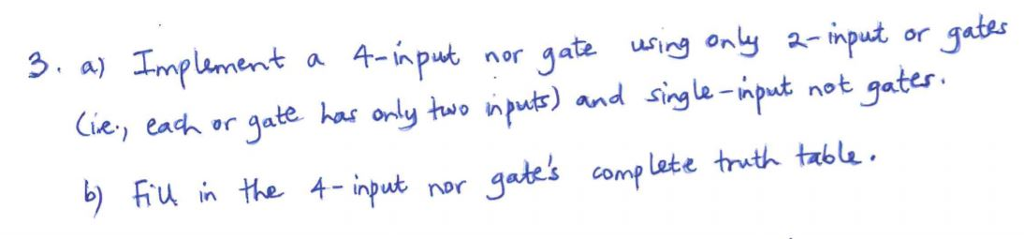 3. a) Implement a 4-input nor gate using only 2-input or gates
(i.e., each or gate has only two inputs) and single-input not gates.
b) Fill in the 4-input nor gate's complete truth table.